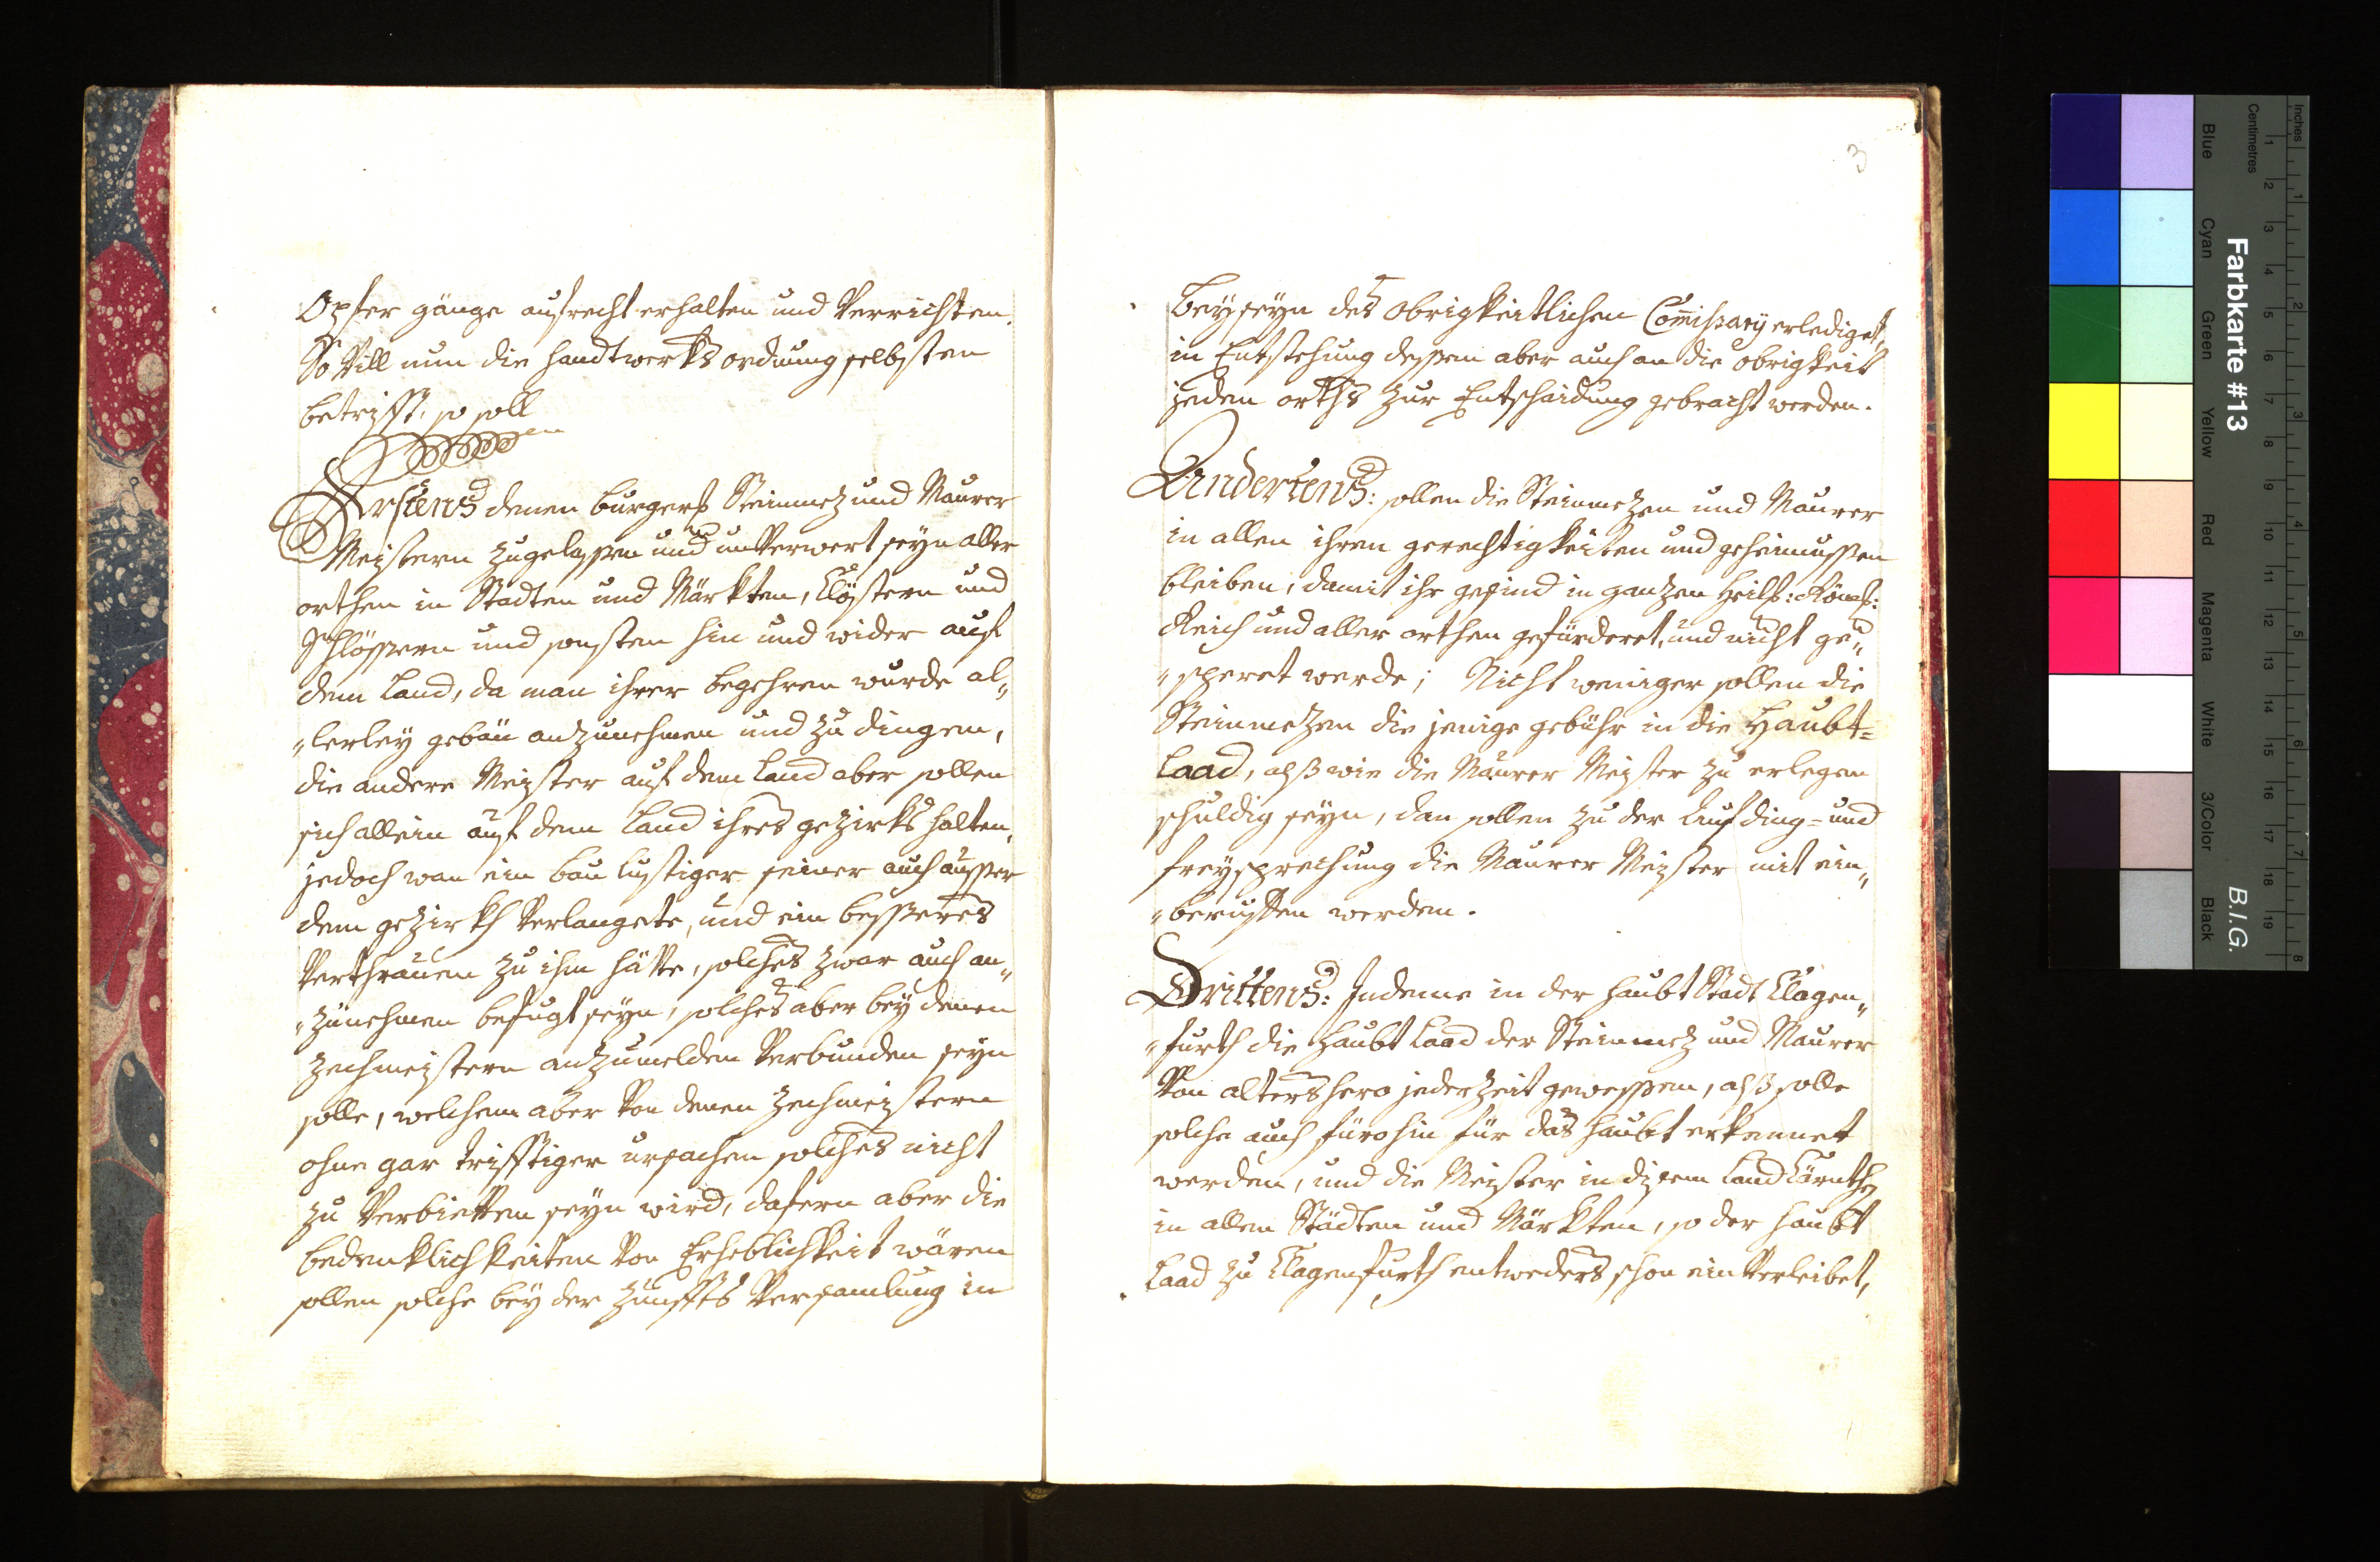 Opfer gänge aufrecht erhalten und Verrichten.
So Vill nun die handtwerks ordnung selbsten
betrifft, so soll
Erstens denen burgerl: Steinmez und Maurer
Meistern zugelassen und unVerwert seyn aller
orthen in Stadten und Märkten, Clöstern und
Schlössern und sonsten hin und wider auf
dem Land, da man ihrer begehren wurde al„
„lerley gebäu anzunehmen und zu dingen,
die andere Meister auf dem Land aber sollen
sich allein auf dem Land ihres gezirks halten,
jedoch wan ein bau lustiger seiner auch ausser
dem gezirkh Verlangete, und ein besseres
Verthrauen zu ihm hätte, solches zwar auch an„
„zunehmen befugt seyn, solches aber bey denen
Zechmeistern anzumelden Verbunden seyn
solle, welchem aber Von denen Zechmeistern
ohne gar trifftiger ursachen solches nicht
zu Verbietten seyn wird, dafern aber die
bedenklichkeiten Von Erheblichkeit wären
sollen solche bey der Zunffts Versamlung in
3
beyseyn des obrigkeitlichen Comissary erlediget,
in Entstehung dessen aber auch an die obrigkeit
jeden orths zur Entscheidung gebracht werden.
Andertens: sollen die Steinmezen und Maurer
in allen ihren gerechtigkeiten und geheimnussen
bleiben, damit ihr gesind in ganzen Heil: Röm:
Reich und aller orthen gefürderet, und nicht ge„
„speret werde; Nicht weniger sollen die
Steinmezen die jenige gebühr in die Haubt=
Laad, alß wie die Maurer Meister zu erlegen
schuldig seyn, dan sollen zu der Aufding= und
freysprechung die Maurer Meister mit ein„
„beruffen werden.
Drittens: Indeme in der haubt Stadt Clagen„
„furth die haubt Laad der Steinmez und Maurer
Von altershero jederzeit gewessen, alß solle
solche auch fürohin für das haubt erkennet
werden, und die Meister in disem Land Cärnthen
in allen Städten und Märkten, so der haubt
Laad zu Clagenfurth entweders schon einVerleibet,
Inches
Centimetres
Farbkarte #13
B.I.G.
Blue
Cyan
Green
Yellow
Red
Magenta
White
3/Color
Black